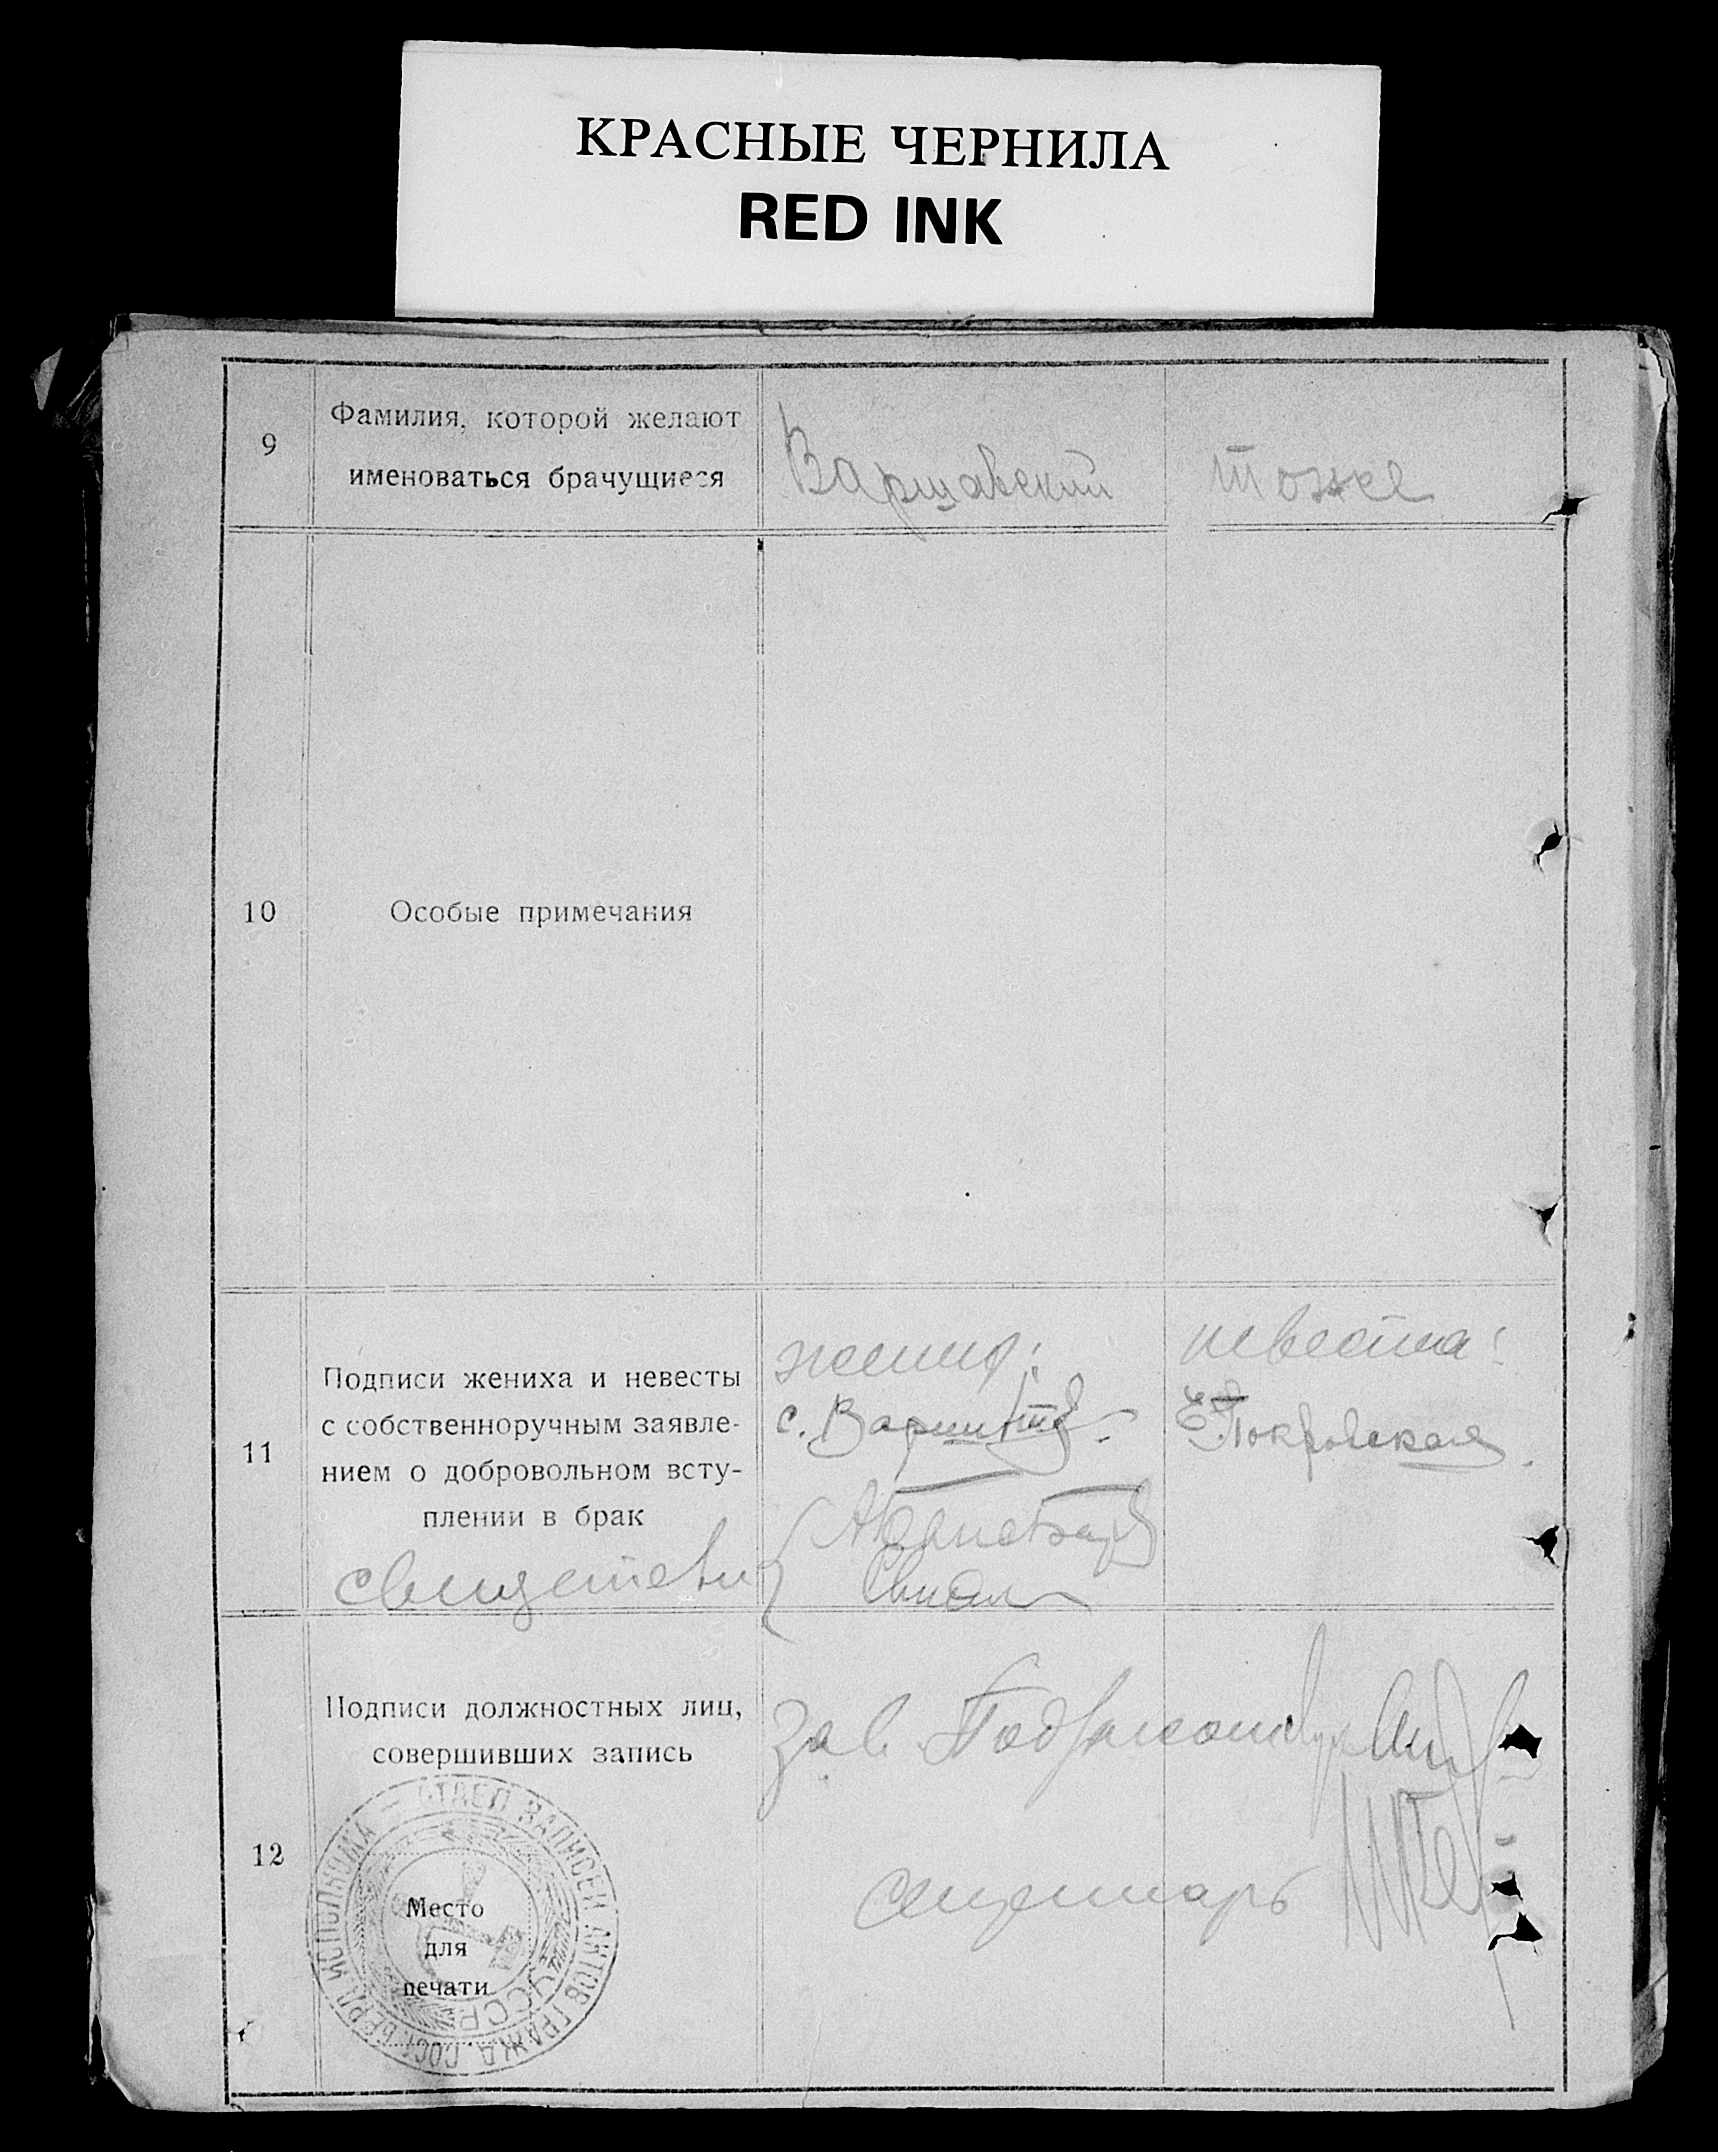 КРАСНЫЕ ЧЕРНИЛА
RED INK
9
Фамилия, которой желают
именоваться брачущиеся
Варшавский
тоже
10
Особые примечания
11
Подписи жениха и невесты
с собственноручным заявле-
нием о добровольном всту-
плении в брак
жених:
невеста:
Е. Покровская
свидетели
12
Подписи должностных лиц,
совершивших запись
Зав. Подъ
секретарь
Место
для
печати
ОТДЕЛ ЗАПИСЕЙ АКТОВ ГРАЖД. СОСТ.
УССР